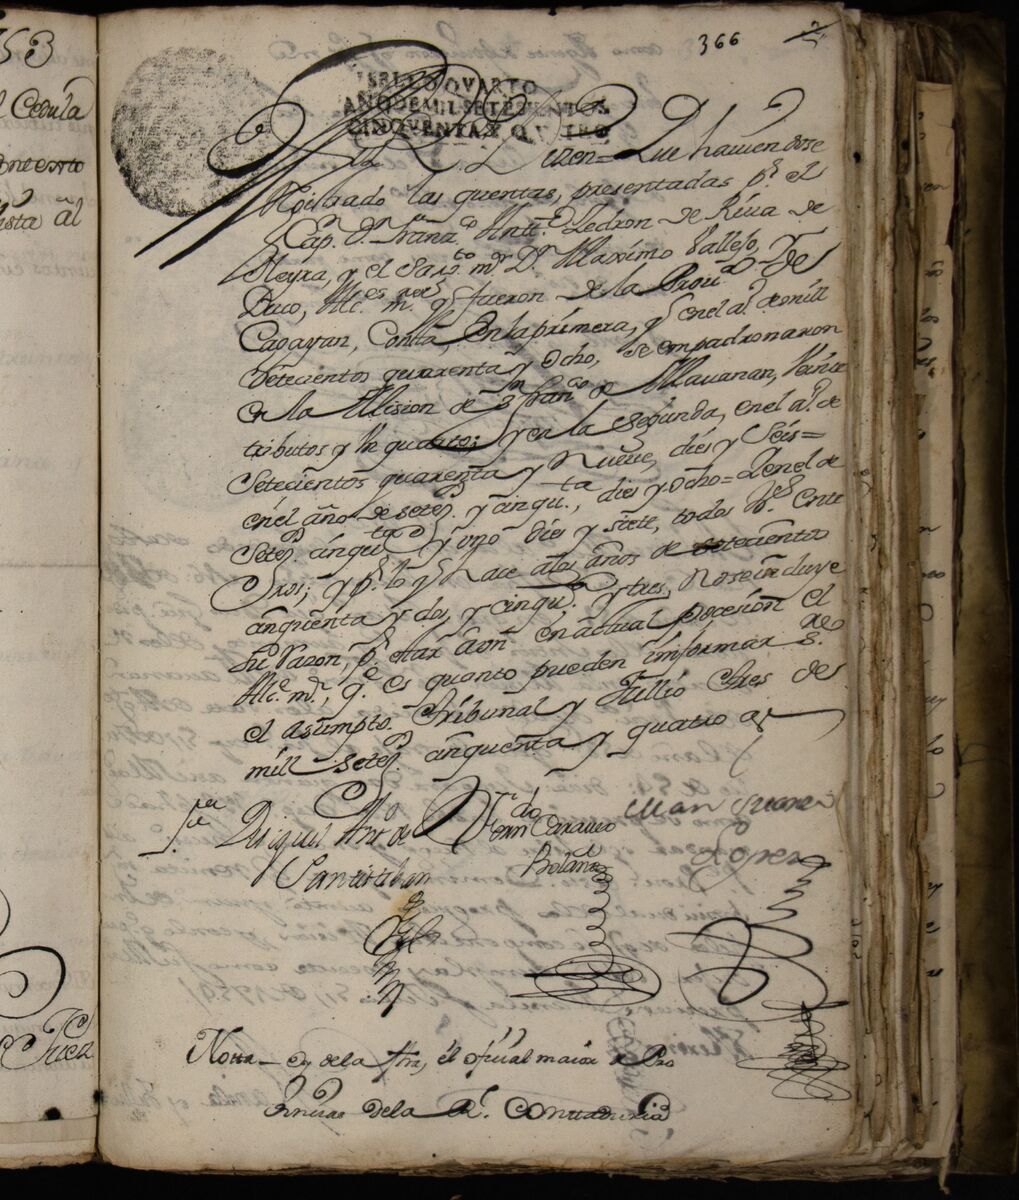 753
Cedula
366
SELLO QVARTO
AÑO DE MIL SETECIENTOS
CINQVENTA Y QVATRO
Dizen = Que haviendose
Rejistrado las quentas, presentadas p.r el
Cap. D. Fran.co Antt.o Pedron de Riva de
Neyra, y el Sarx.to m.r D.n Maximo Vallejo, y de
Baco, Alc.es m.res q.e fueron de la Prou.a de
Cagayan, Consta, en la primera, q.e en el a.o de mill
Setecientos quarenta y ocho, se empadronaron
en la Mision de S.n Fran.co de Mauanan, Veinte
tributos y Un quarto; y en la segunda, en el a.o de
Setecientos quarenta y nueue, dies y Seis =
en el año de sete.s y cinqu.ta, dies y ocho = Y en el de
Sete.s cinqu.ta y uno dies y siete, todos R.s Ente
ros; y p.r lo q.e hace a los años de setecientos
cinquenta y dos, y cinqu.ta y tres, no se incluye
su razon, p.r estar aun en actual posesion el
Alc.e m.r, q.e es quanto pueden informar s.re
el asumpto. Tribunal y Jullio tres de
mill sete.s cinquenta y quatro a.s
Miguel Ant.o de
Santistiban
Juan Suarez
Lopez
Bolaños
Notta — en dela Ara, el oficial maior de Pro
vincias dela R.l Contaduria
Juez